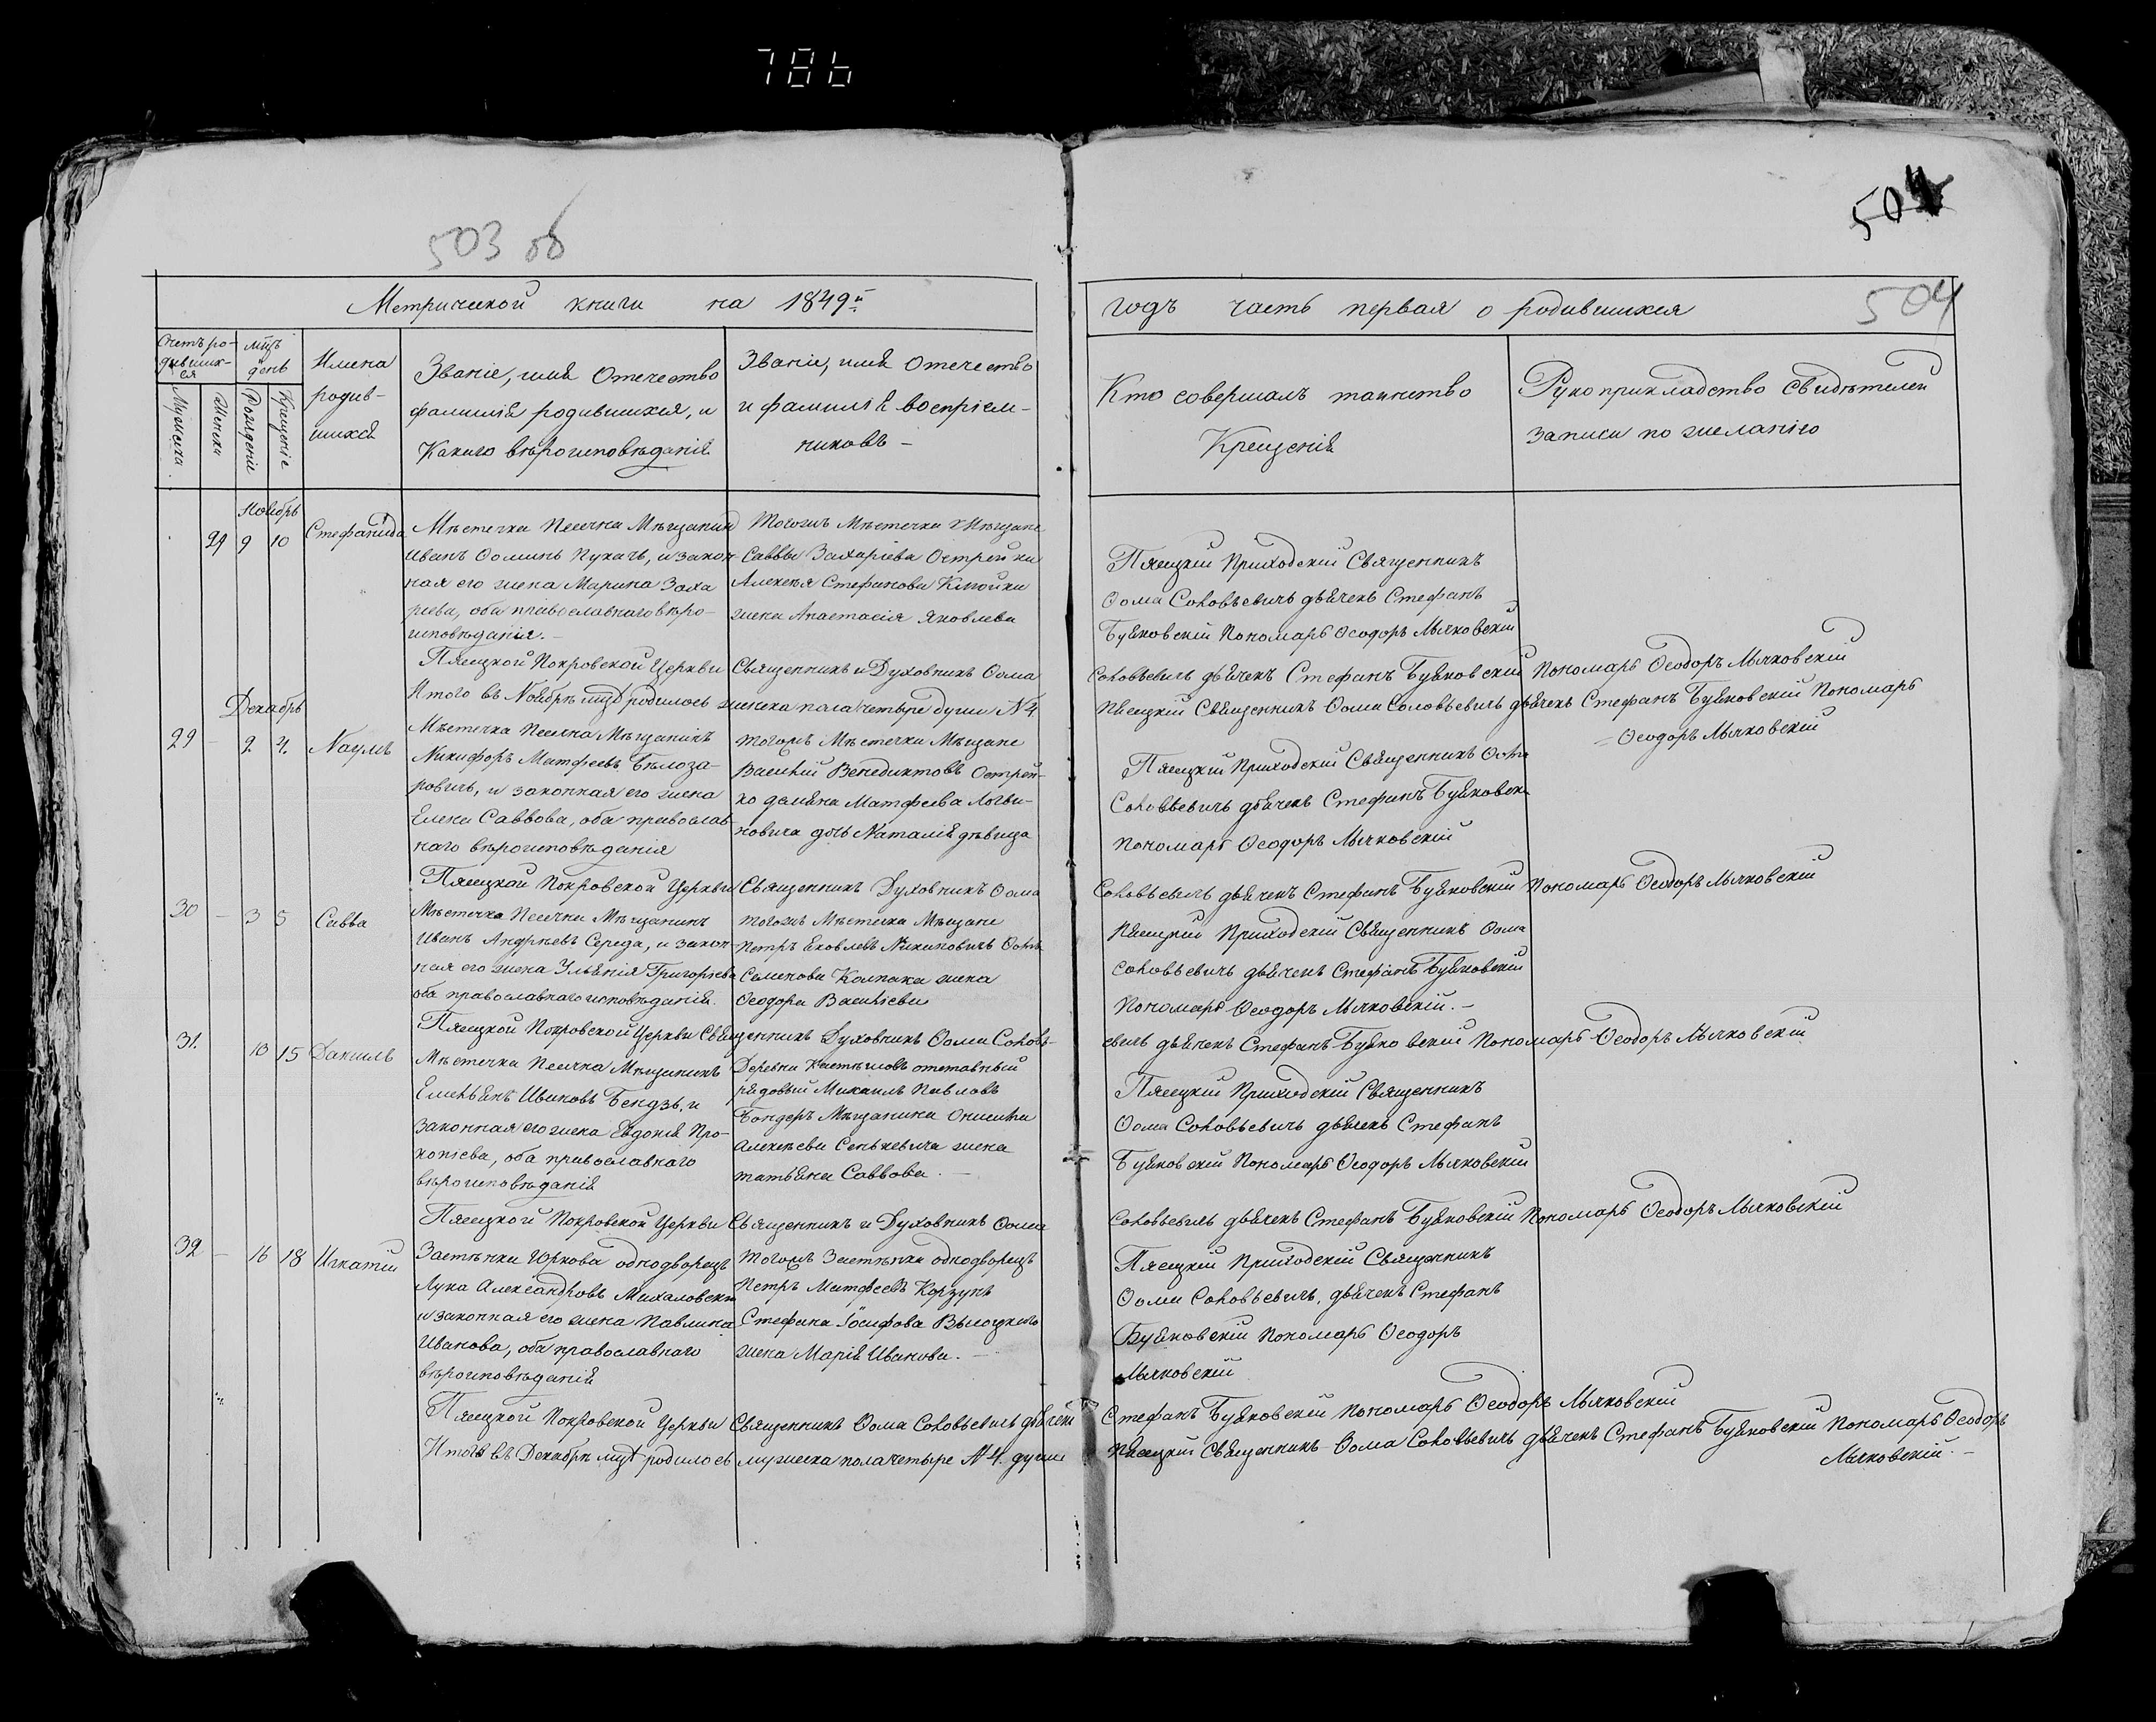 786
503 об
504
504
Метрической книги на 1849й
годъ часть первая о родившихся
Счетъ ро-
дивших-
ся
мцъ
день
Имена
родив-
шихся
Званіе, имя Отечество
фамилія родившихся, и
Какого вѣроисповѣданія
Званіе, имя Отечество
и фамилія воспріем-
никовъ -
Кто совершалъ таинство
Крещенія
Рукоприкладство свидѣтелей
записи по желанію
Мужска
Женска
Рожденіе
Крещеніе
Ноябрь
29 9 10 Стефанида
Мѣстечка Песечна Мѣщанинъ
Иванъ Ѳоминъ Пукачъ, и закон-
ная его жена Марина Заха
ріева, оба православнаго вѣро-
исповѣданія. -
Тогожъ Мѣстечка Мѣщане
Саввы Захаріева Острейки
Алексѣя Стефанова
жена Анастасія Яковлева
Пясецкій Приходскій Священникъ
Ѳома Соловьевичъ дьячекъ Стефанъ -
Буяковскій Пономарь Ѳеодоръ Мычковскій
Пясецкой Покровской Церкви Священникъ и Духовникъ Ѳома
Соловьевичъ дьячекъ Стефанъ Буяковскій Пономарь Ѳеодоръ Мычковскій
Итого въ Ноябрѣ мцѣ родилось женска пола четыре души № 4.
Пясецкій Священникъ Ѳома Соловьевичъ дьячекъ Стефанъ Буяковскій Пономарь
Ѳеодоръ Мычковскій
Декабрь
29 - 2 4. Наумъ
Мѣстечка Песечна Мѣщанинъ
Никифоръ Матфеевъ Бѣлоза-
ровичъ, и законная его жена
Елена Саввова, оба православ
наго вѣроисповѣданія
тогожъ Мѣстечка Мѣщане
Василій Венедиктовъ Острей-
ко Матфеева Логви-
новича дочь Наталія дѣвица
Пясецкій Приходскій Священникъ Ѳома
Соловьевичъ дьячекъ Стефанъ Буяковскій
Пономарь Ѳеодоръ Мычковскій
Пясецкой Покровской Церкви Священникъ Духовникъ Ѳома
Соловьевичъ дьячекъ Стефанъ Буяковскій Пономарь Ѳеодоръ Мычковскій
30 - 3 5 Савва
Мѣстечка Песечна Мѣщанинъ
Иванъ Андрѣевъ Середа, и закон-
ная его жена Ульянія Григорьева
оба православнаго исповѣданія.
тогожъ Мѣстечка Мѣщане
Петръ Яковлевъ Никиповичъ Ѳомы
Семенова Колпака жена
Ѳеодора Васильева
Пясецкій Приходскій Священникъ Ѳома
Соловьевичъ дьячекъ Стефанъ Буяковскій
Пономарь Ѳеодоръ Мычковскій. -
Пясецкой Покровской Церкви Священникъ Духовникъ Ѳома Соловь-
евичъ дьячекъ Стефанъ Буяковскій Пономарь Ѳеодоръ Мычковскій
31. 10 15 Данилъ
Мѣстечка Песечна Мѣщанинъ
Емельянъ Ивановъ Бендзь, и
законная его жена Евдокія Про-
копіева, оба православнаго
вѣроисповѣданія
Деревни отставный
рядовый Михаилъ Павловъ
Бондеръ Мѣщанина Онисима
Алексѣева Сенькевича жена
татьяна Саввова. -
Пясецкій Приходскій Священникъ
Ѳома Соловьевичъ дьячекъ Стефанъ
Буяковскій Пономарь Ѳеодоръ Мычковскій
Пясецкой Покровской Церкви Священникъ и Духовникъ Ѳома
Соловьевичъ дьячекъ Стефанъ Буяковскій Пономарь Ѳеодоръ Мычковскій
32 - 16 18 Игнатій
Застѣнка Юркова однодворецъ
Лука Александровъ Михаловскій
и законная его жена Павлина
Иванова, оба православнаго
вѣроисповѣданія
тогожъ Застѣнка однодворецъ
Петръ Матфеевъ Корзунъ
Стефана Іосифова Высоцкаго
жена Марія Иванова. -
Пясецкій Приходскій Священникъ
Ѳома Соловьевичъ, дьячекъ Стефанъ
Буяковскій Пономарь Ѳеодоръ
Мычковскій
Пясецкой Покровской Церкви Священникъ Ѳома Соловьевичъ дьячекъ
Стефанъ Буяковскій Пономарь Ѳеодоръ Мычковскій
Итого въ Декабрѣ мцѣ родилось мужеска пола четыре № 4. души
Пясецкій Священникъ Ѳома Соловьевичъ дьячекъ Стефанъ Буяковскій Пономарь Ѳеодоръ
Мычковскій. -